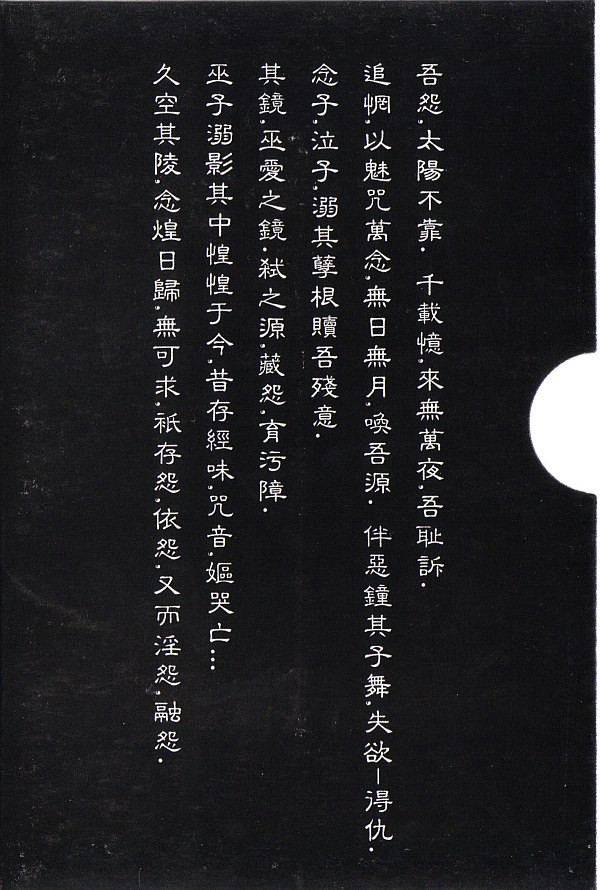 吾怨,太陽不靠. 千載憶,來無萬夜,吾耻訴.
追惘,以魅咒萬念,無日無月,喚吾源. 伴惡鐘其子舞,失欲—得仇.
念子,泣子,溺其孽根贖吾殘意.
其鏡,巫愛之鏡.弒之源,藏怨,育污障.
巫子溺影其中惶惶于今,昔存經味,咒音,嫗哭亡...
久空其陵,念煌日歸,無可求,祇存怨,依怨,又而淫怨,融怨.